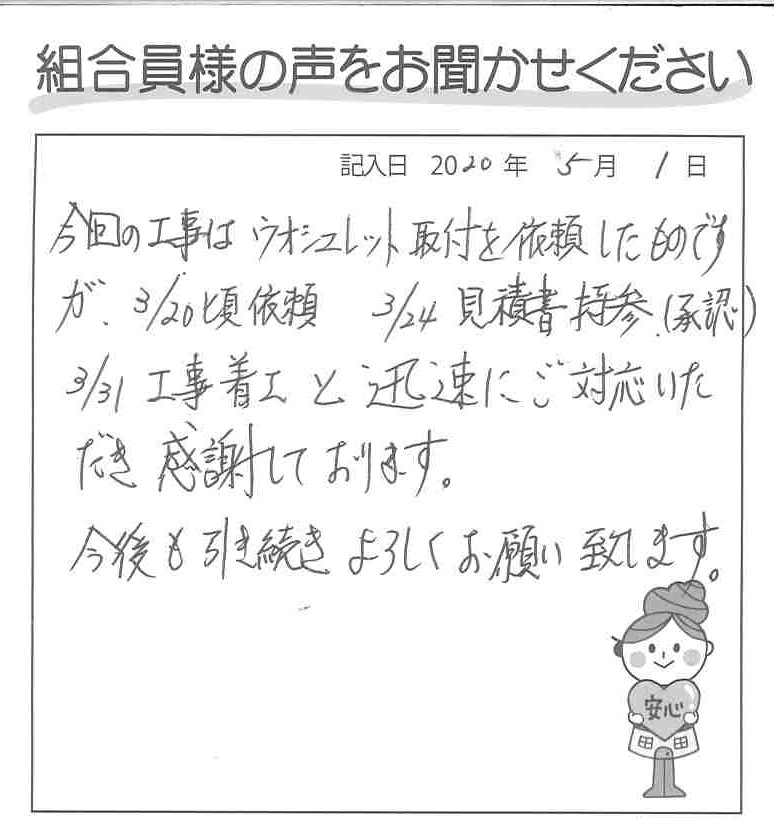 組合員様の声をお聞かせください
記入日 2020年 5月 1日
今回の工事は ウオシュレット取付を依頼したものです
が、3/20頃依頼 3/24 見積書持参(承認)
3/31 工事着工 と迅速にご対応いた
だき 感謝しております。
今後も引き続き よろしくお願い致します。
安心